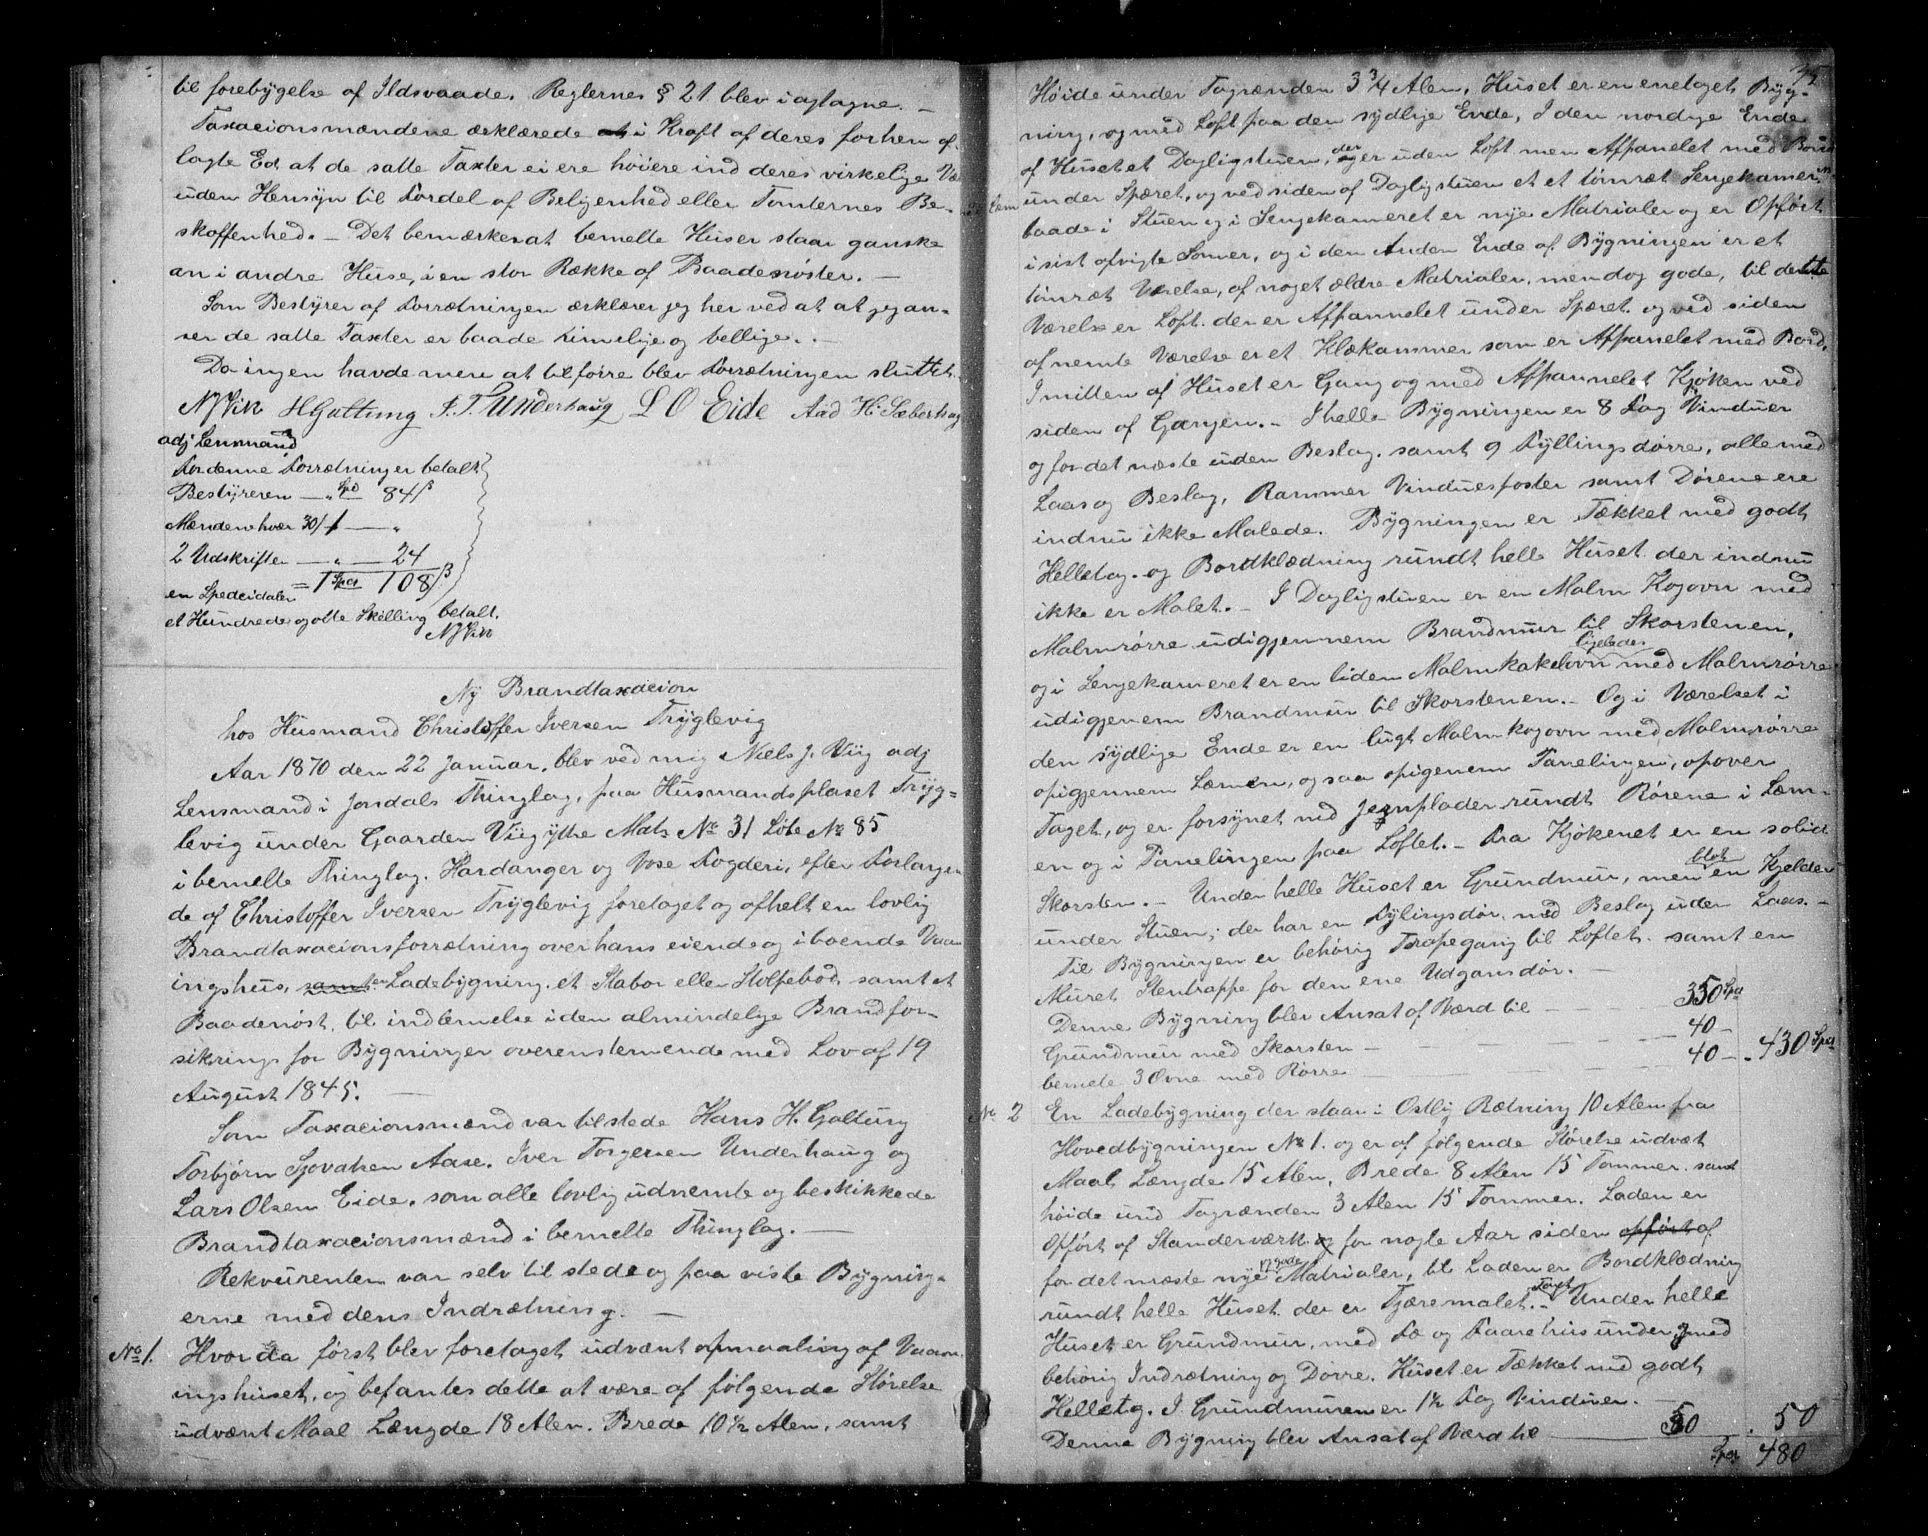 til forebygelse af Ildsvaade. Reglernes § 21 blev iagtagne. —
Taxacionsmændene ærklærede i Kraft af deres forhen af
lagte Ed at de satte Taxter ei ere höiere ind deres virkelige Væ
uden Hensyn til Fordel af Beligenhed eller Tomternes Be-
skaffenhed. — Det bemærkes at bemelte Huser staar ganske
an i andre Huse, i en stor Række af Baadenöster. —
Som Bestyrer af Forrætningen ærklærer jeg her ved at at jeg an-
ser de satte Taxter er baade rimelige og bellige. —
Da ingen havde mere at tilförre blev Forrætningen sluttet.
NJViik HGaltung I.T. Underhaug L O Eide Aad H. Sæberhag
adj Lensmand
For denne Forrætning er betalt
Bestyreren — " Spd 84 ß
Mændene hver 30/ 1 — "
2 Udskrifter — " — 24
en Specidaler = 1 Spd 108 ß
et Hundrede og otte Skelling betalt.
NJViik
Ny Brandtaxacion
hos Husmand Christoffer Iversen Tryglevig
Aar 1870 den 22 Januar. blev ved mig Niels J. Viig adj
Lensmand i Jondals Thinglag, paa Husmandsplaset Tryg=
levig under Gaarden Viig ytre Mat. No 31 Löbe No 85
i bemelte Thinglag. Hardanger og Vose Fogderi, efter Forlangen
de af Christoffer Iversen Tryglevig foretaget og afhelt en lovlig
Brandtaxacionsforrætning over hans eiende og iboende Vaan
ingshus, samt en Ladebygning. et Stabor eller Stolpebod, samt et
Baadenöst, til indlemelse i den almindelige Brandfor-
sikring for Bygninger overenstemende med Lov af 19
August 1845. —
Som Taxacionsmænd var tilstede Hans H. Galtung
Torbjörn Sjovatsen Aase. Iver Torgersen Underhaug og
Lars Olsen Eide. som alle lovlig udnemte og beskikkede
Brandtaxacionsmænd i bemelte Thinglag. —
Rekvirenten var selv til stede og paa viste Bygning-
erne med dens Indrætning. —
No 1. Hvor da först blev foretaget udvænt opmaaling af Vaan
ingshuset, og befantes dette at være af fölgende Störelse
udvænt Maal Længde 18 Alen. Brede 10 1/2 Alen, samt
Höide under Tagrænden 3 3/4 Alen, Huset er en enetaget Byg-
ning, og med Loft paa den sydlige Ende, I den nordige Ende
af Huset et Dagligstuen, der er uden Loft men Afpanelet med Bord
under Spæret, og ved siden af Dagligstuen et et tömræt Sengekamer,
baade i Stuen og i Sengekameret er nye Matrialer og er Opfört
i sist afvigte Somer, og i den Anden Ende af Bygningen er et
tömræt Værelse, af noget ældre Matrialer, men dog gode, til dette
Værelse er Loft. der er Afpannelet under Spæret og ved siden
af nemte Værelse er et Klækammer som er Afpanelet med Bord,
I mitten af Huset er Gang og med Afpannelet Kjöken ved
siden af Gangen. — I helle Bygningen er 8 Fag Vinduer
og for det næste uden Beslag. samt 9 Fyllingsdörre, alle med
Laas og Beslag, Rammer Vinduesposter samt Dörene ere
indnu ikke Malede. Bygningen er Tækket med godt
Helletag. og Bordklædning rundt helle Huset der indnu
ikke er Malet. — I Dagligstuen er en Malm Kogovn med
Malmrörre udigjennem Brandmur til Skorstenen,
og i Sengekameret er en liden Malmkakelovn ligeledes med Malmrörre
udigjenem Brandmur til Skorstenen. — Og i Værelset i
den sydlige Ende er en lugt Malm kogovn med Malmrörre
opigjennem Læmen, og saa opigenem Panelingen, opover
Taget, og er forsynet med Jernplader rundt Rörene i Læm-
en og i Panelingen paa Loftet. — Fra Kjökenet er en solid
Skorsten. — Under helle Huset er Grundmur, men blot en Kjelder
under Stuen; der har en Fylingsdör. med Beslag uden Laas. —
Til Bygningen er behörig Trapegang til Loftet. samt en
Muret Stentrappe for den ene Udgansdör. —
Denne Bygning blev Ansat af Værd til — 350 Spd
Grundmur med Skorsten — 40 —
bemelte 3 Ovne med Rörre — 40 — . 430 Spd
No 2 En Ladebygning der staar i Ostlig Rætning 10 Alen fra
Hovedbygningen No 1. og er af fölgende Störelse udvæt
Maal Længde 15 Alen, Brede 8 Alen 15 Tommer. samt
höide und Tagrænden 3 Alen 15 Tommer. Laden er
Opfört af Standerværk og for nogle Aar siden opfört af
for det mæste nye og gode Matrialer, til Laden er Bordklædning
rundt helle Huset der er Tjæremalet. — Under helle
Huset er Grundmur, med Fæ og Faarehus under med
behörig Indrætning og Dörre. Huset er Tækket med godt
Helletag. I Grundmuren er 1 1/2 Fag Vinduer. —
Denne Bygning blev Ansat af Værd til — 50 . 50
Spd 480